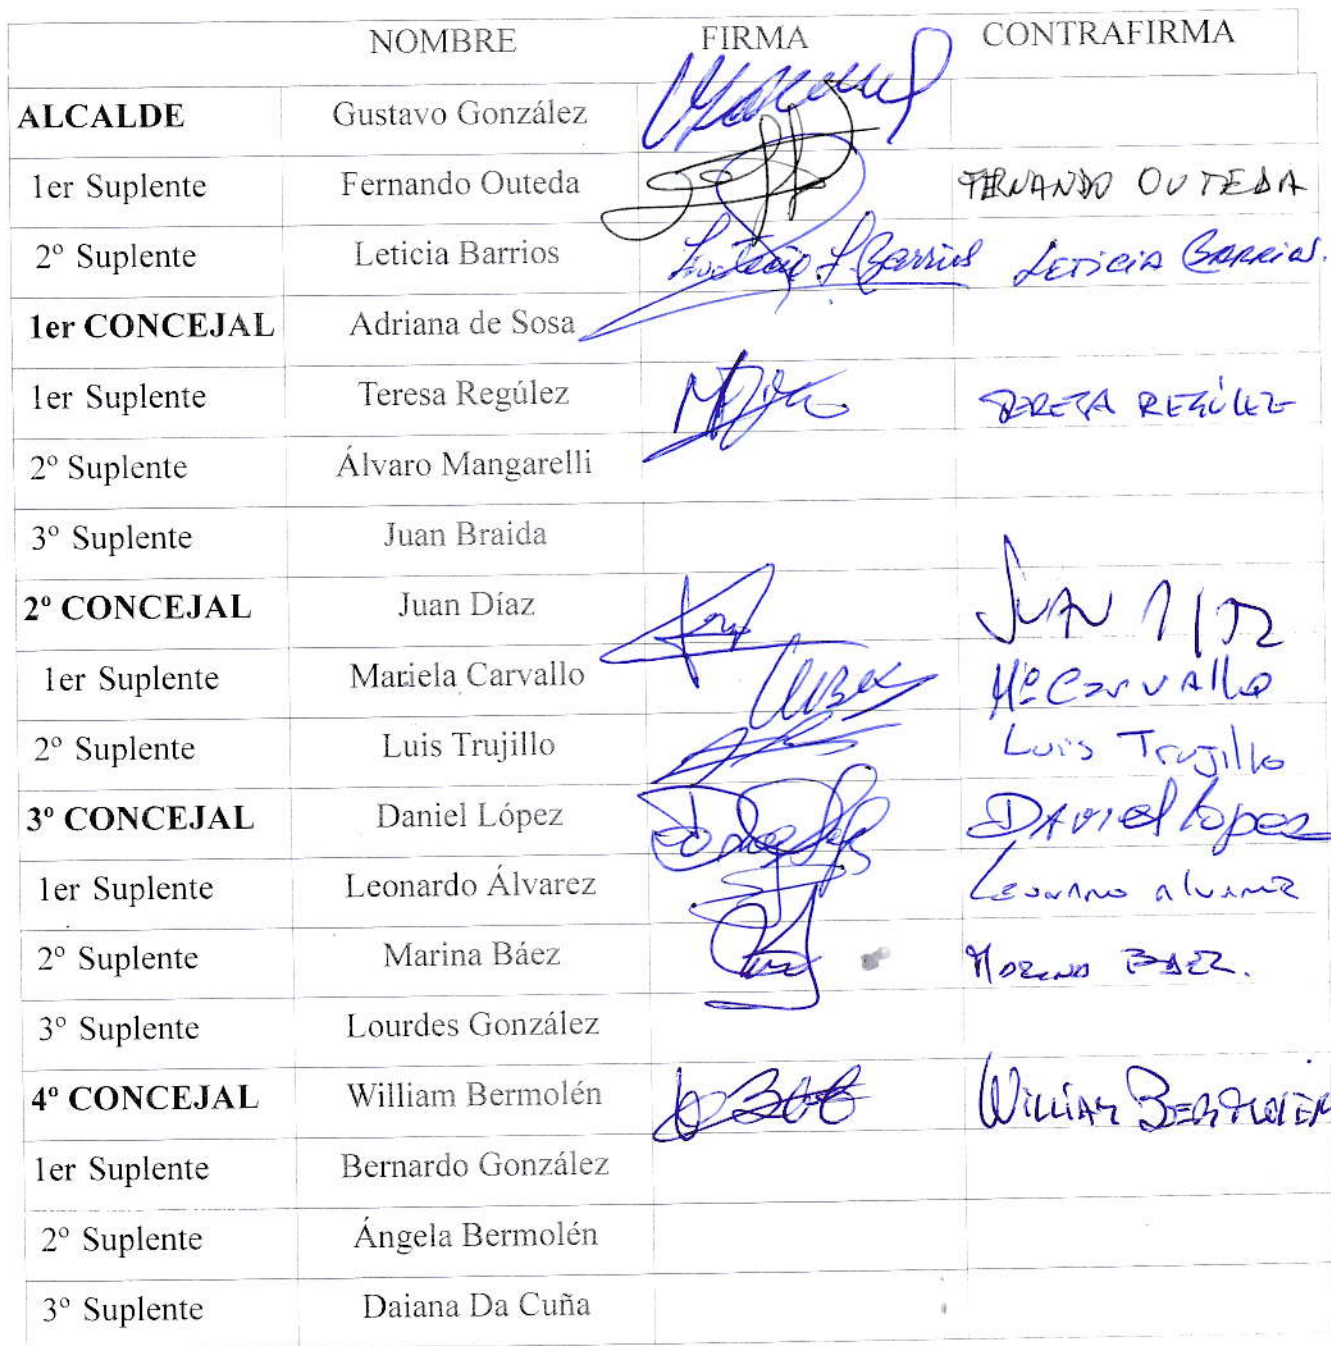 NOMBRE FIRMA CONTRAFIRMA
ALCALDE Gustavo González
1er Suplente Fernando Outeda FERNANDO OUTEDA
2º Suplente Leticia Barrios Leticia Barrios LETICIA BARRIOS.
1er CONCEJAL Adriana de Sosa
1er Suplente Teresa Regúlez TERESA REGÚLEZ
2º Suplente Álvaro Mangarelli
3º Suplente Juan Braida
2º CONCEJAL Juan Díaz JUAN
1er Suplente Mariela Carvallo Mª Carvallo
2º Suplente Luis Trujillo Luis Trujillo
3º CONCEJAL Daniel López DANIEL López
1er Suplente Leonardo Álvarez Leonardo alvarez
2º Suplente Marina Báez BAEZ.
3º Suplente Lourdes González
4º CONCEJAL William Bermolén WILLIAM BERMOLEN
1er Suplente Bernardo González
2º Suplente Ángela Bermolén
3º Suplente Daiana Da Cuña